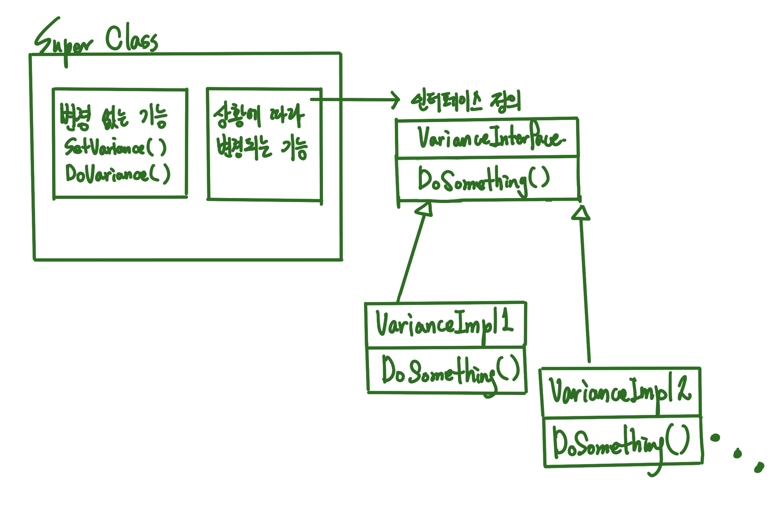 Super Class
변경 없는 기능
SetVariance()
DoVariance()
상황에 따라
변경되는 기능
인터페이스 정의
VarianceInterface
DoSomething()
VarianceImpl1
DoSomething()
VarianceImpl2
DoSomething()